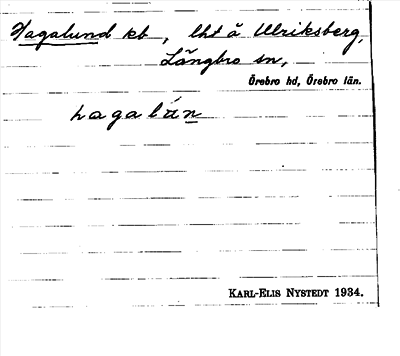 Hagalund kb, lht å Ulriksberg,
Längbro sn,
Örebro hd, Örebro län.
hagalún
KARL-ELIS NYSTEDT 1934.